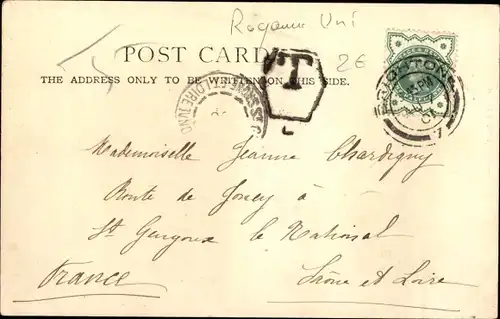 Royaume Uni
POST CARD
26
THE ADDRESS ONLY TO BE WRITTEN ON THIS SIDE.
T
L
FOLKESTONE
7
Mademoiselle Jeanne Chardigny
Route de Joncy à
St Gengoux le National
France
Saône et Loire